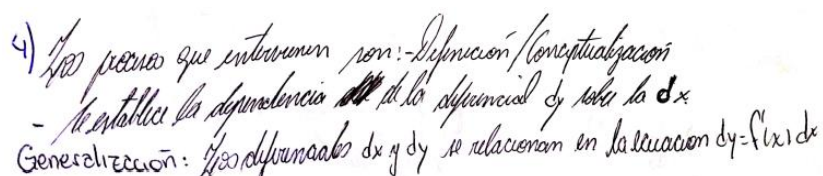 4) Los procesos que intervienen son: - Definición / Conceptualización
- Se establece la dependencia de la diferencial dy sobre la dx.
Generalización: Los diferenciales dx y dy se relacionan en la ecuacion dy=f'(x)dx